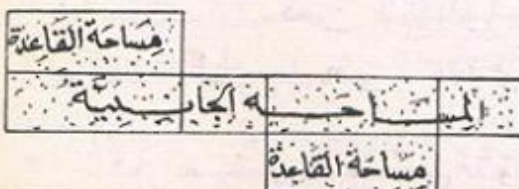 مِسَاحَة القَاعِدَة
المِسَاحَه الجَانِبِيَّة
مِسَاحَة القَاعِدَة